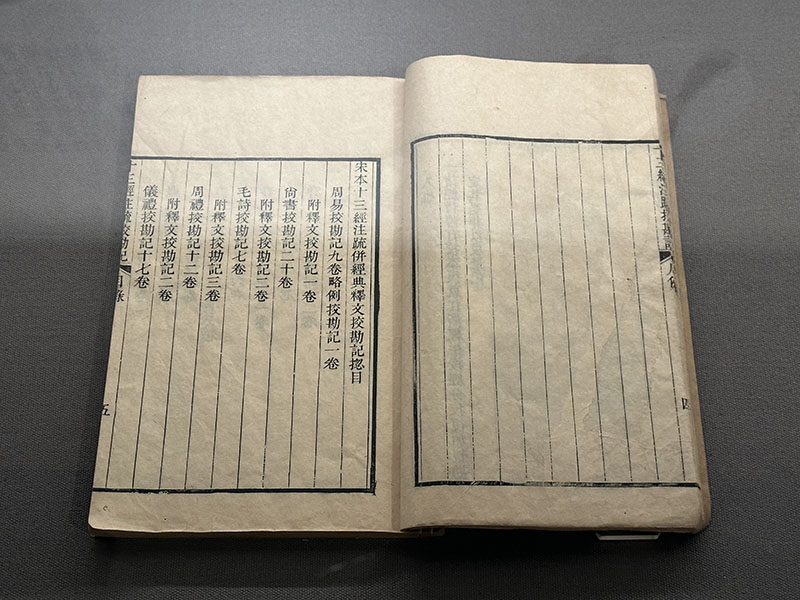 十三經注疏挍勘記 凡例
四
宋本十三經注疏併經典釋文挍勘記揔目
周易挍勘記九卷略例挍勘記一卷
附釋文挍勘記一卷
尙書挍勘記二十卷
附釋文挍勘記二卷
毛詩挍勘記七卷
附釋文挍勘記三卷
周禮挍勘記十二卷
附釋文挍勘記二卷
儀禮挍勘記十七卷
十三經注疏挍勘記 目錄
五